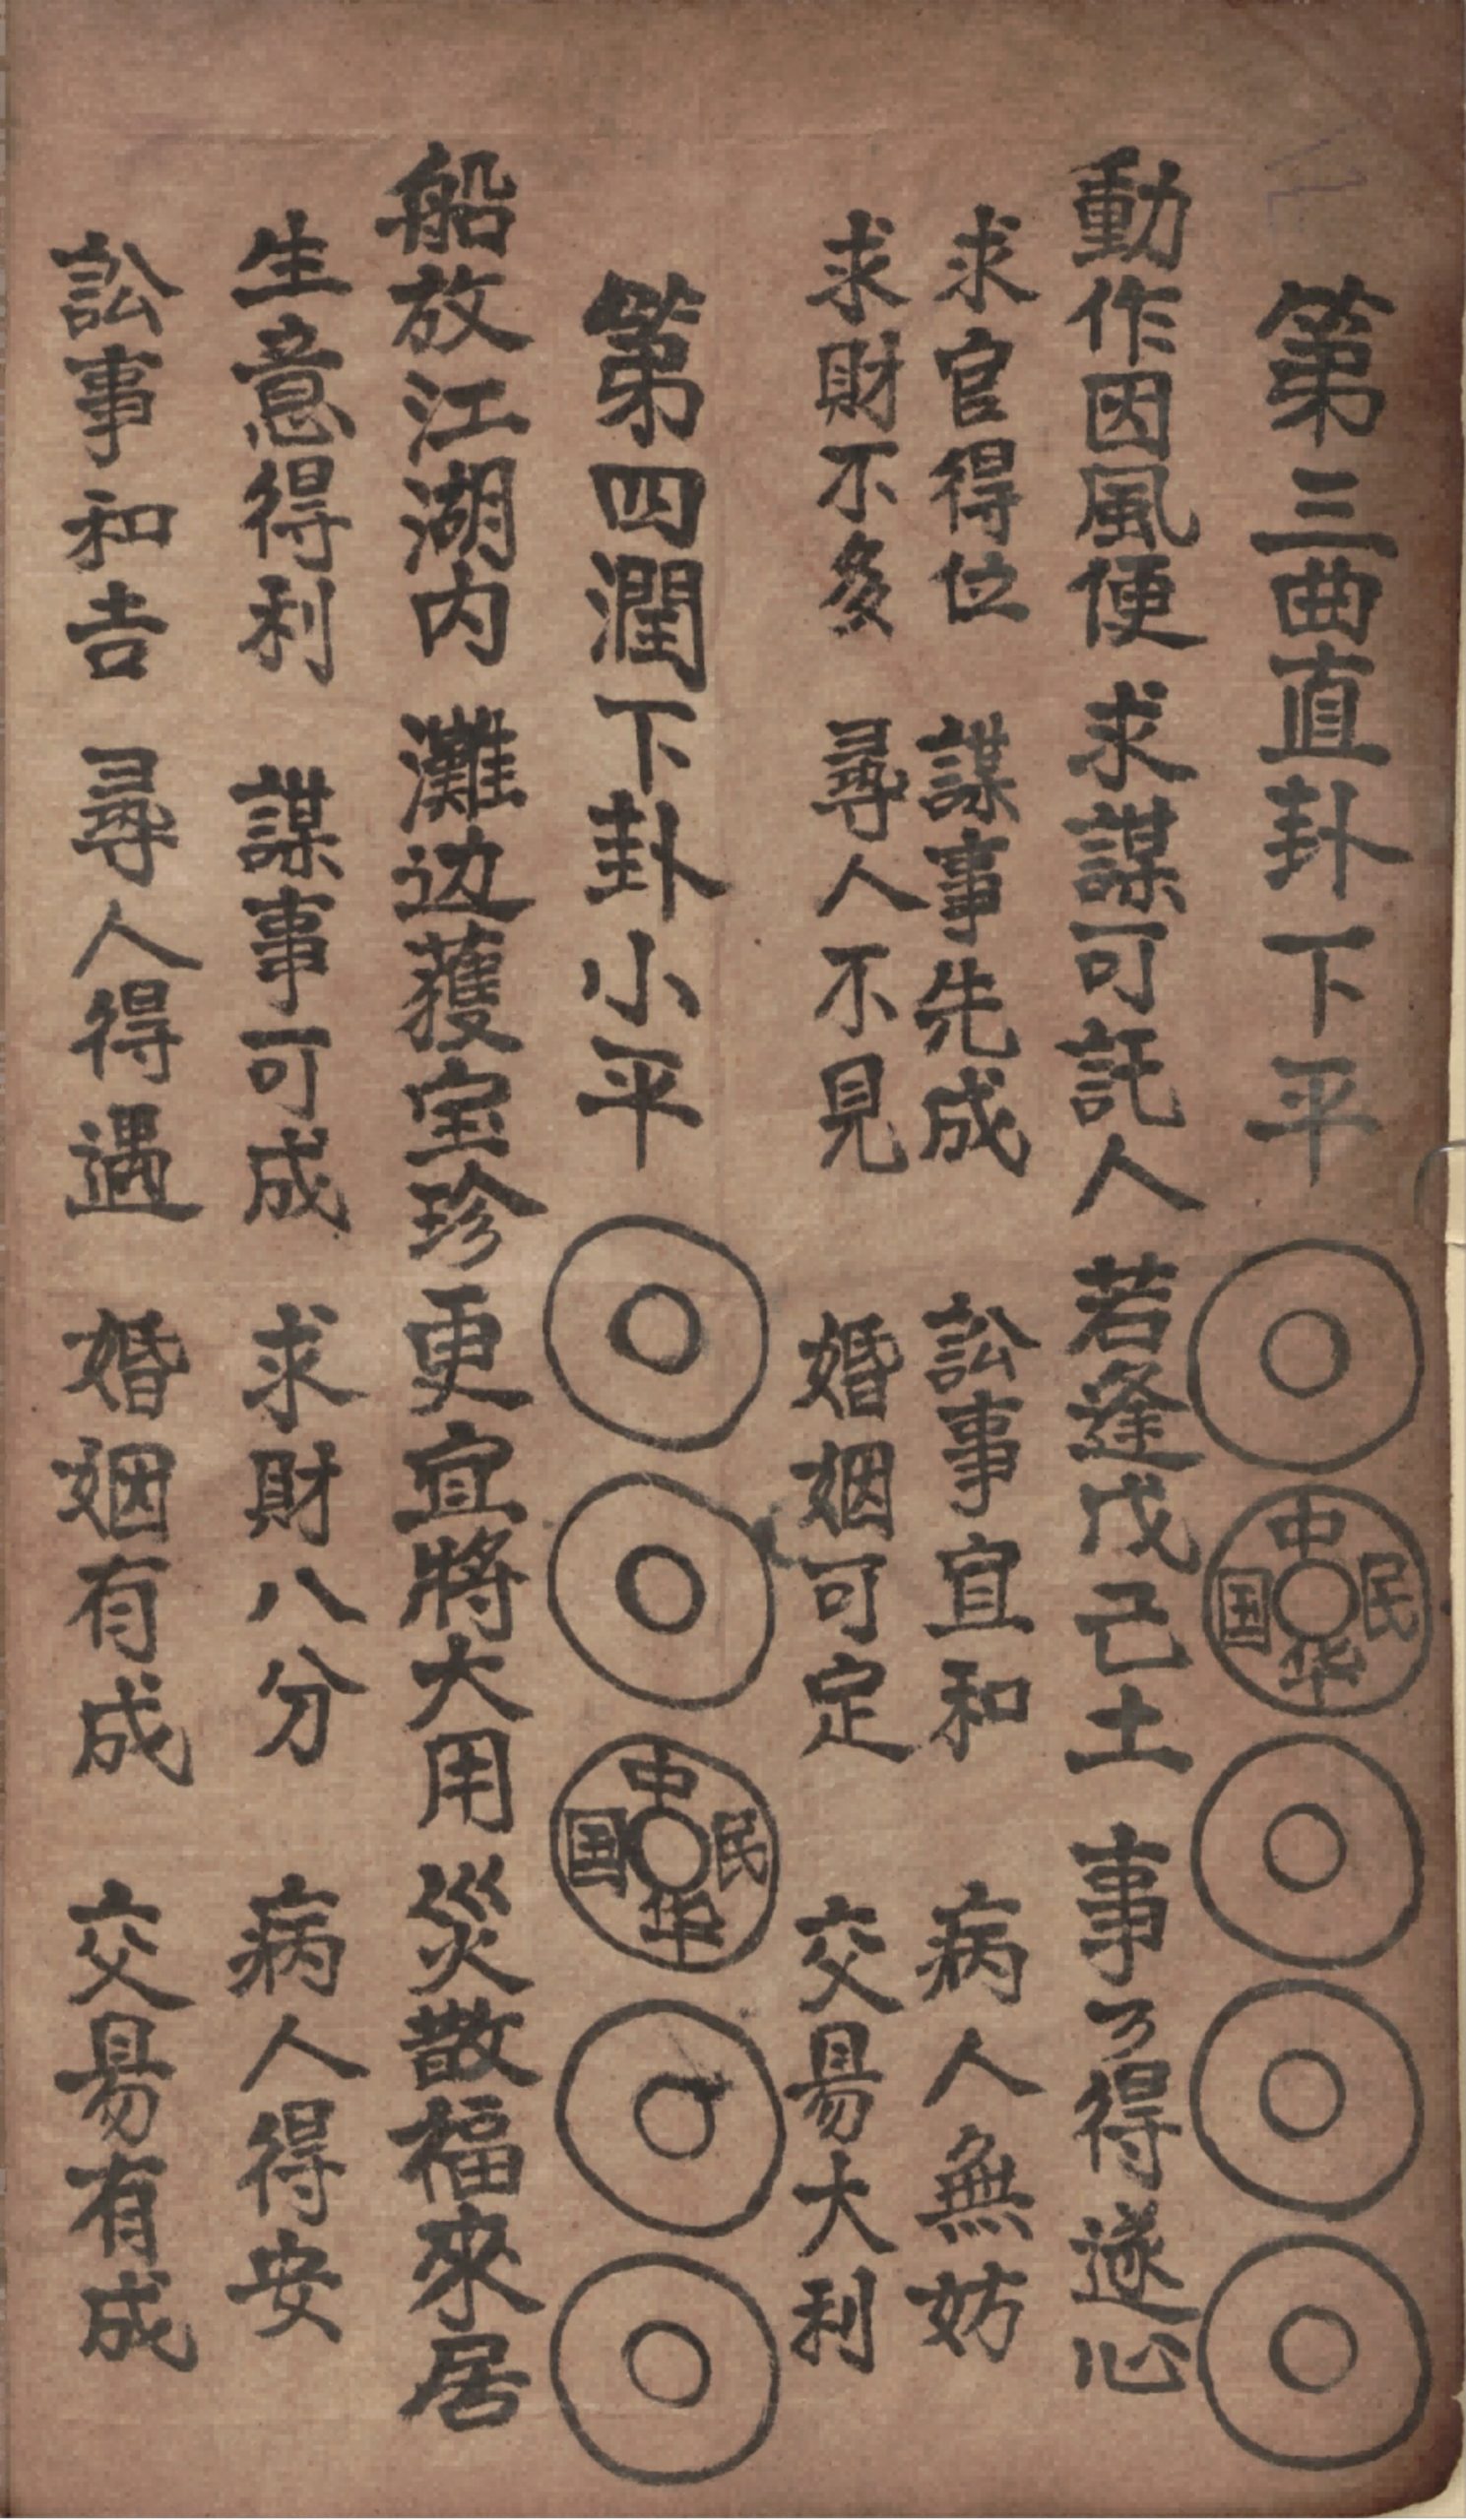 第三曲直卦下平
中華民国
動作因風便 求謀可託人 若逢戊己土 事了得遂心
求官得位 謀事先成 訟事宜和 病人無妨
求財不多 尋人不見 婚姻可定 交易大利
第四潤下卦小平
中華民国
船放江湖内 灘边獲宝珍 更宜將大用 災散福來居
生意得利 謀事可成 求財八分 病人得安
訟事和吉 尋人得遇 婚姻有成 交易有成